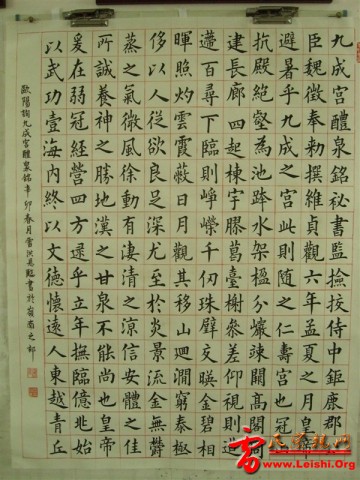 九成宮醴泉銘秘書監撿挍侍中鉅鹿郡公
臣魏徵奉勑撰維貞觀六年孟夏之月皇帝
避暑乎九成之宮此則随之仁壽宮也冠山
抗殿絕壑為池跨水架楹分巖竦闕高閣周
建長廊四起棟宇膠葛臺榭參差仰視則迢
遰百尋下臨則崢嶸千仞珠璧交暎金碧相
暉照灼雲霞蔽日月觀其移山迴澗窮泰極
侈以人從欲良足深尤至於炎景流金無鬱
蒸之氣微風徐動有淒清之涼信安體之佳
所誠養神之勝地漢之甘泉不能尚也皇帝
爰在弱冠經營四方逮乎立年撫臨億兆始
以武功壹海內終以文德懷遠人東越青丘
歐陽詢九成宮醴泉銘辛卯春月雷洪臨書於嶺南之
www.Leishi.Org